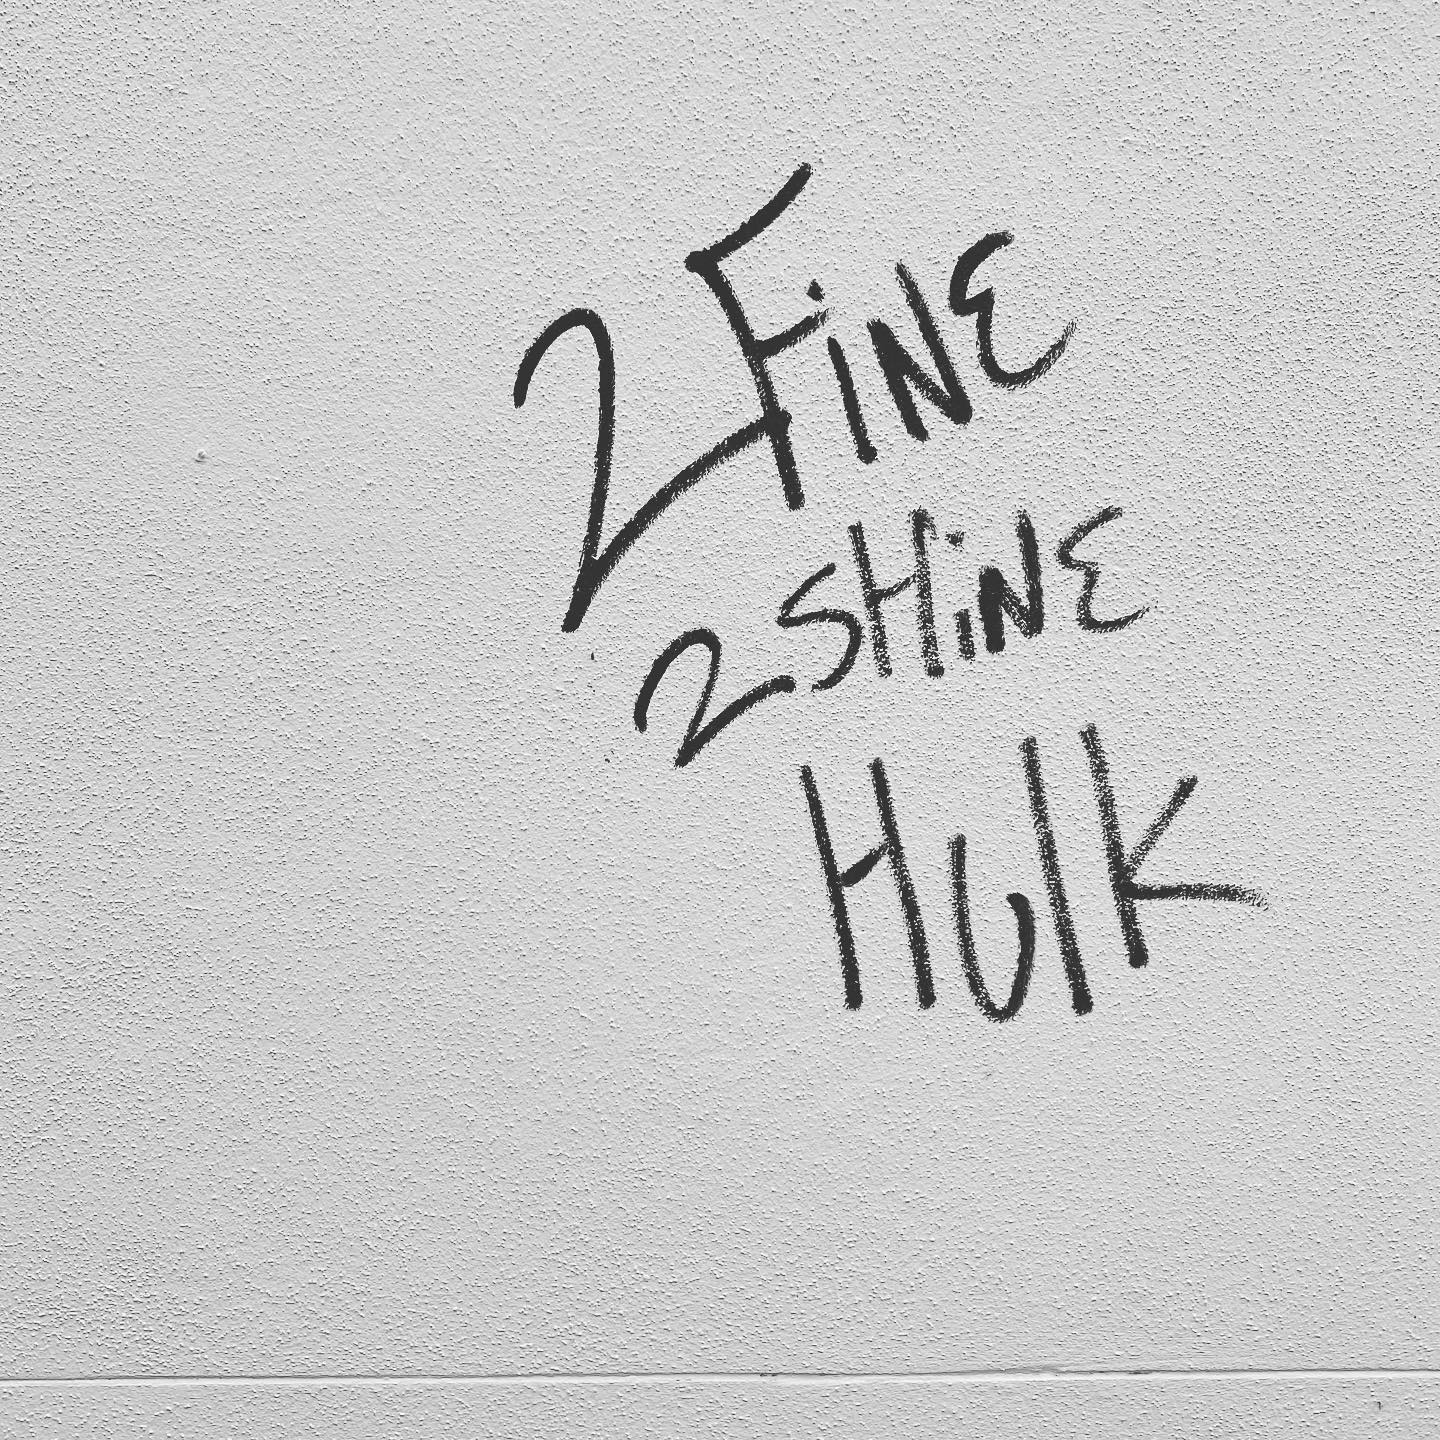 2 FiNE
2 SHiNE
Hulk